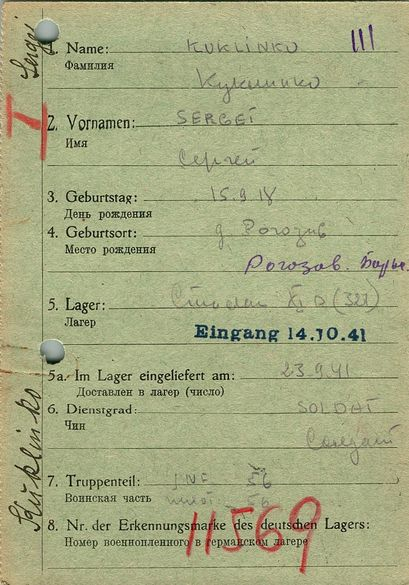 Sergei
III
1. Name: KUKLINKO
Фамилия
Куклинко
I
2. Vornamen: SERGEI
Имя
Сергей
3. Geburtstag: 15.9.18
День рождения
4. Geburtsort: д Рогозив
Место рождения
Рогозав.
5. Lager: XI D (321)
Лагер
Eingang 14.10.41
5a. Im Lager eingeliefert am: 23.9.41
Доставлен в лагер (число)
6. Dienstgrad: SOLDAT
Чин
Солдат
7. Truppenteil: INF 56
Воинская часть 56
8. Nr. der Erkennungsmarke des deutschen Lagers:
Номер военнопленного в германском лагере
11569
Kuklinko